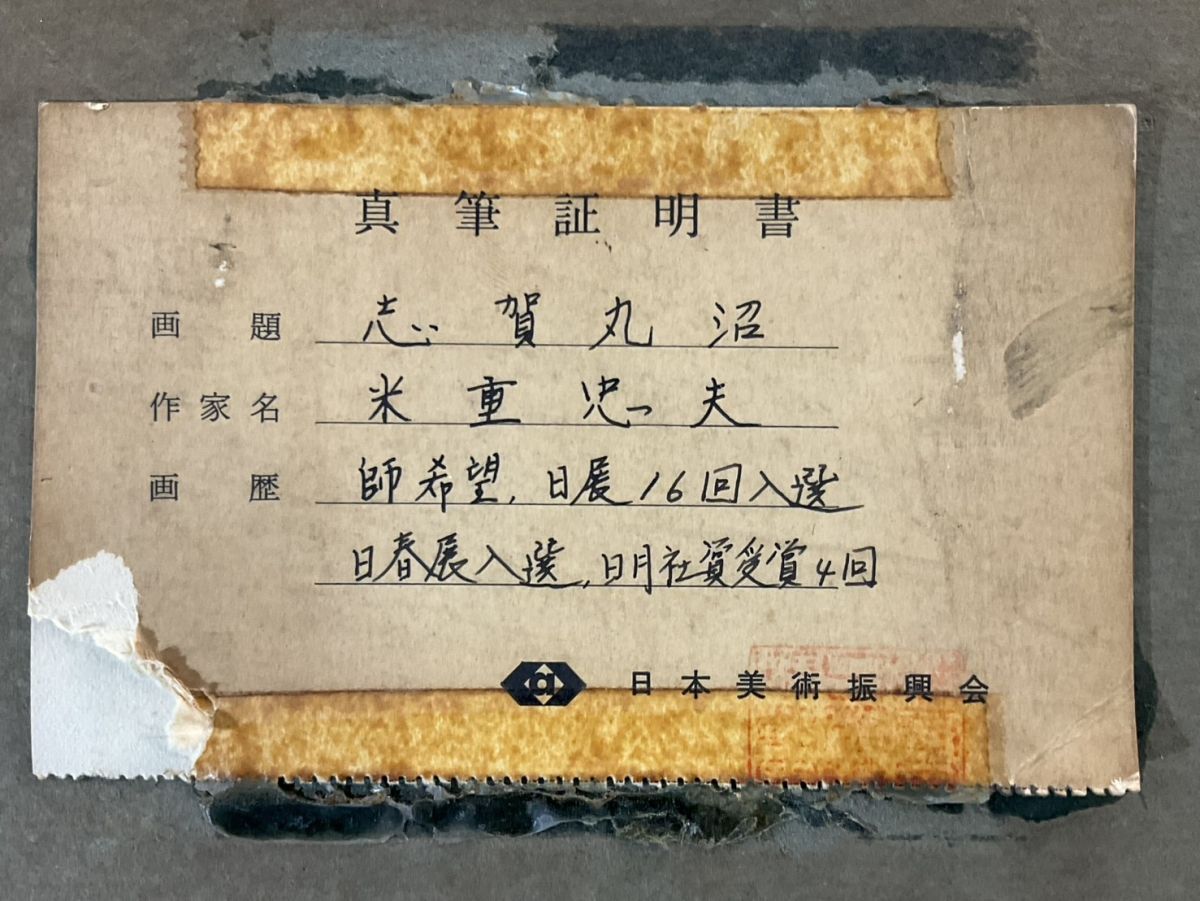 真筆証明書
画題 志賀丸沼
作家名 米重忠夫
画歴 師希望,日展16回入選
日春展入選,日月社賞受賞4回
日本美術振興会